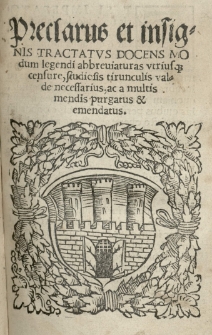 Preclarus et insig-
NIS TRACTATVS DOCENS MO
dum legendi abbreuiaturas vtriusq;
censure, studiosis tirunculis val-
de necessarius, ac a multis
mendis purgatus &
emendatus.